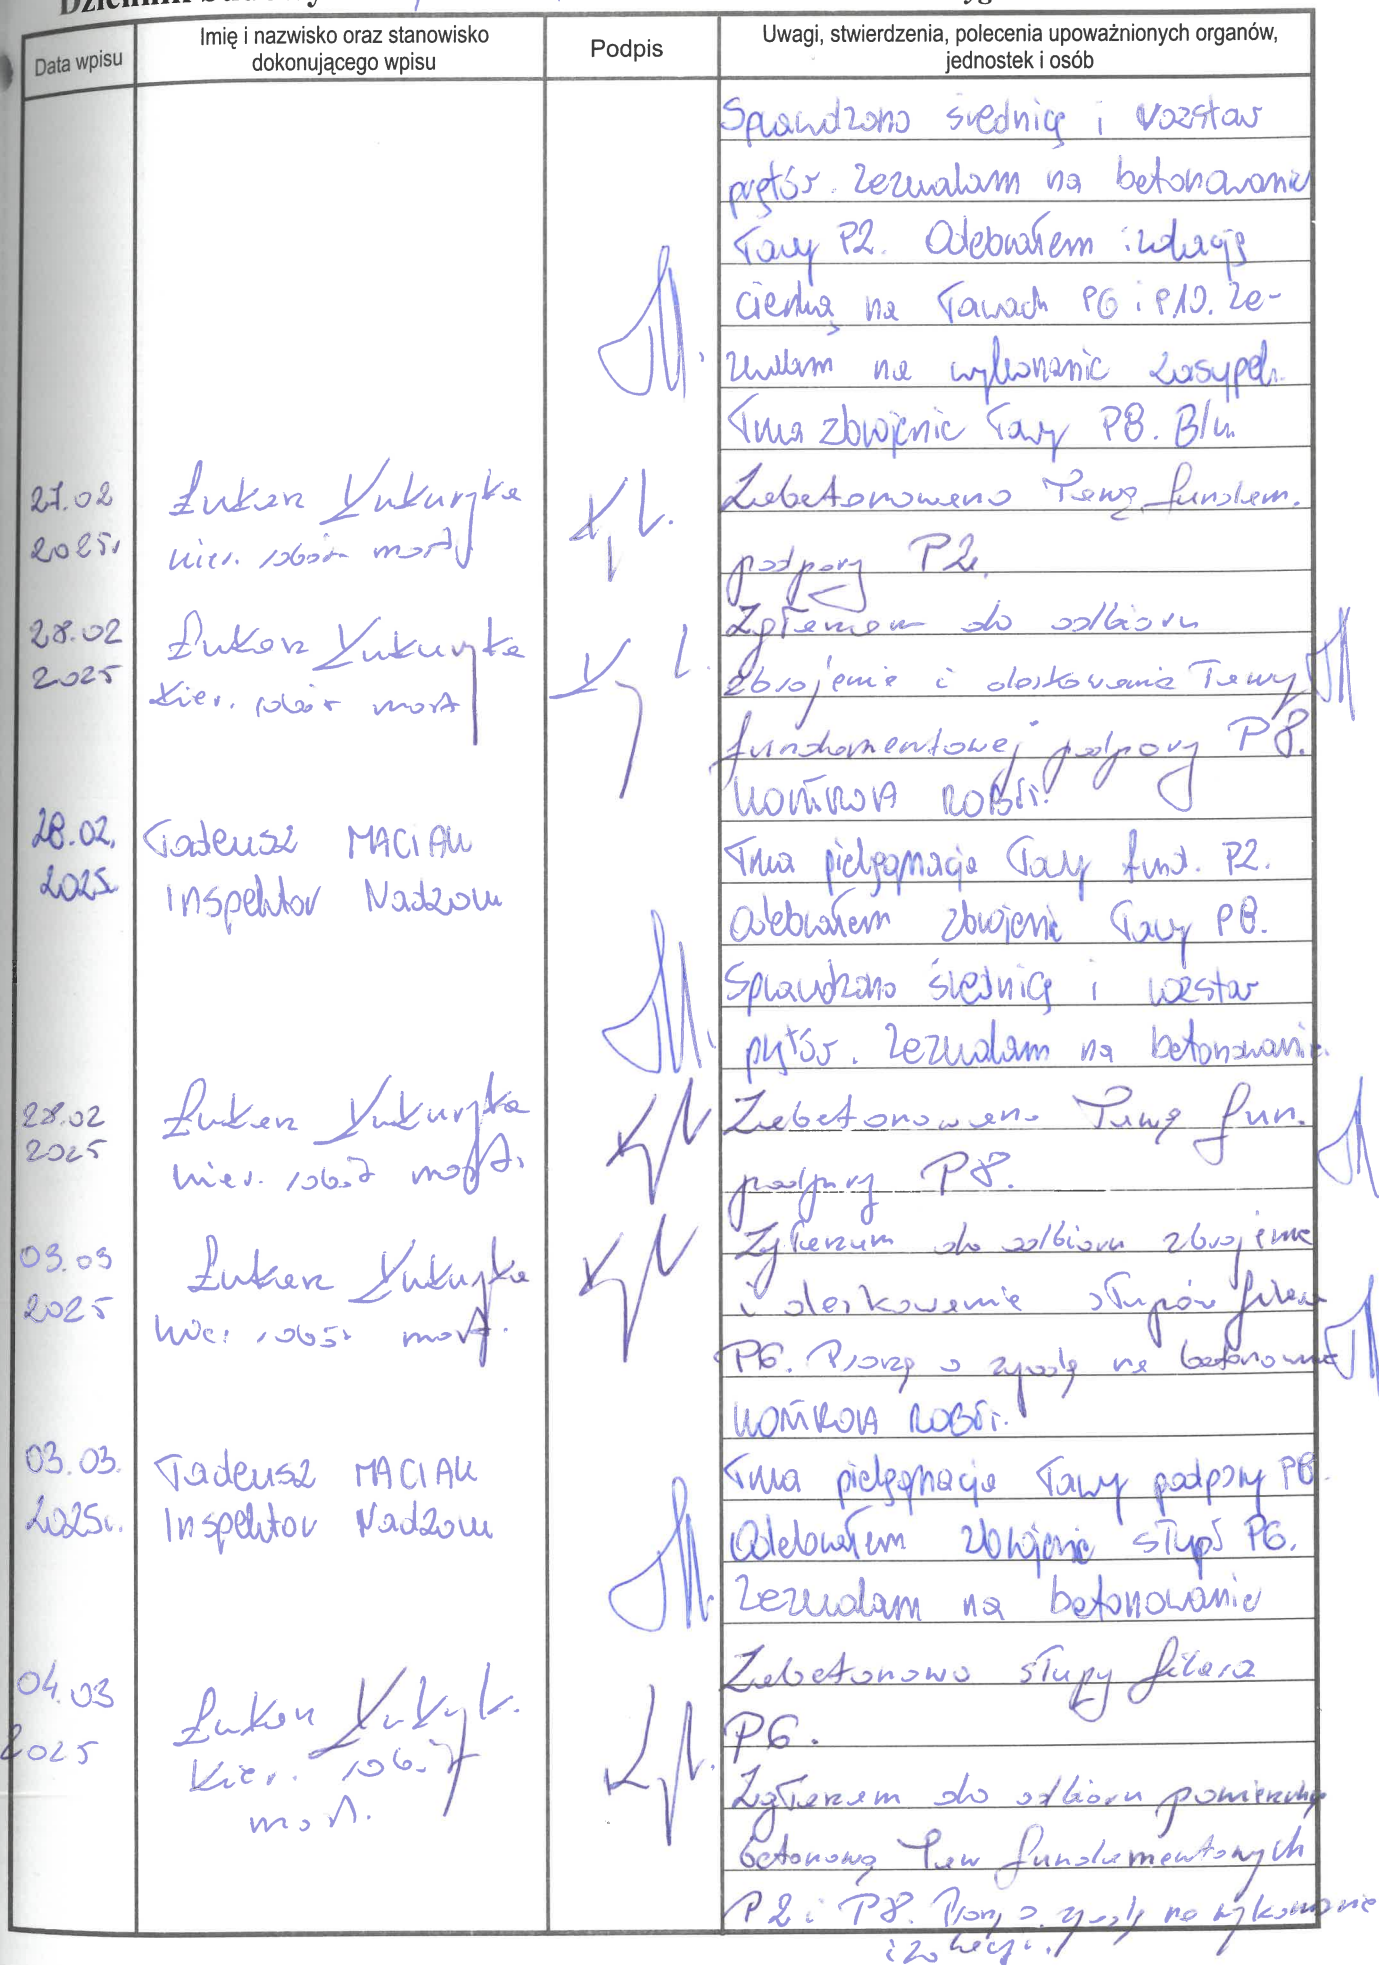 Data wpisu
Imię i nazwisko oraz stanowisko
dokonującego wpisu
Podpis
Uwagi, stwierdzenia, polecenia upoważnionych organów,
jednostek i osób
Sprawdzono średnicę i rozstaw
prętów. Zezwalam na betonowanie
ławy P2. Odebrałem izolację
cienką na ławach P6 i P.10. Ze-
zwalam na wykonanie zasypek.
Trwa zbrojenie ławy P8. B/u.
27.02
2025r
Łukasz
kier. robót most.
Zabetonowano ławę fundam.
podpory P2.
28.02
2025
Łukasz
kier. robót most
Zgłaszam do odbioru
zbrojenie i deskowanie ławy
fundamentowej podpory P8.
28.02.
2025
Tadeusz MACIAK
Inspektor Nadzoru
KONTROLA ROBÓT.
Trwa pielęgnacja ławy fund. P2.
Odebrałem zbrojenie ławy P8.
Sprawdzono średnicę i rozstaw
prętów. Zezwalam na betonowanie.
28.02
2025
Łukasz
kier. robót most.
Zabetonowano ławę fun.
podpory P8.
03.03
2025
Łukasz
kier. robót most.
Zgłaszam do odbioru zbrojenie
i deskowanie słupów filara
P6. Proszę o zgodę na betonowanie
03.03.
2025r.
Tadeusz MACIAK
Inspektor Nadzoru
KONTROLA ROBÓT.
Trwa pielęgnacja ławy podpory P8.
Odebrałem zbrojenie słupó P6.
Zezwalam na betonowanie
04.03
2025
Łukasz
kier. robót
most.
Zabetonowo słupy filara
P6.
Zgłaszam do odbioru
betonową ław fundamentowych
P2 i P8. Proszę o zgodę na wykonanie
izolacji.